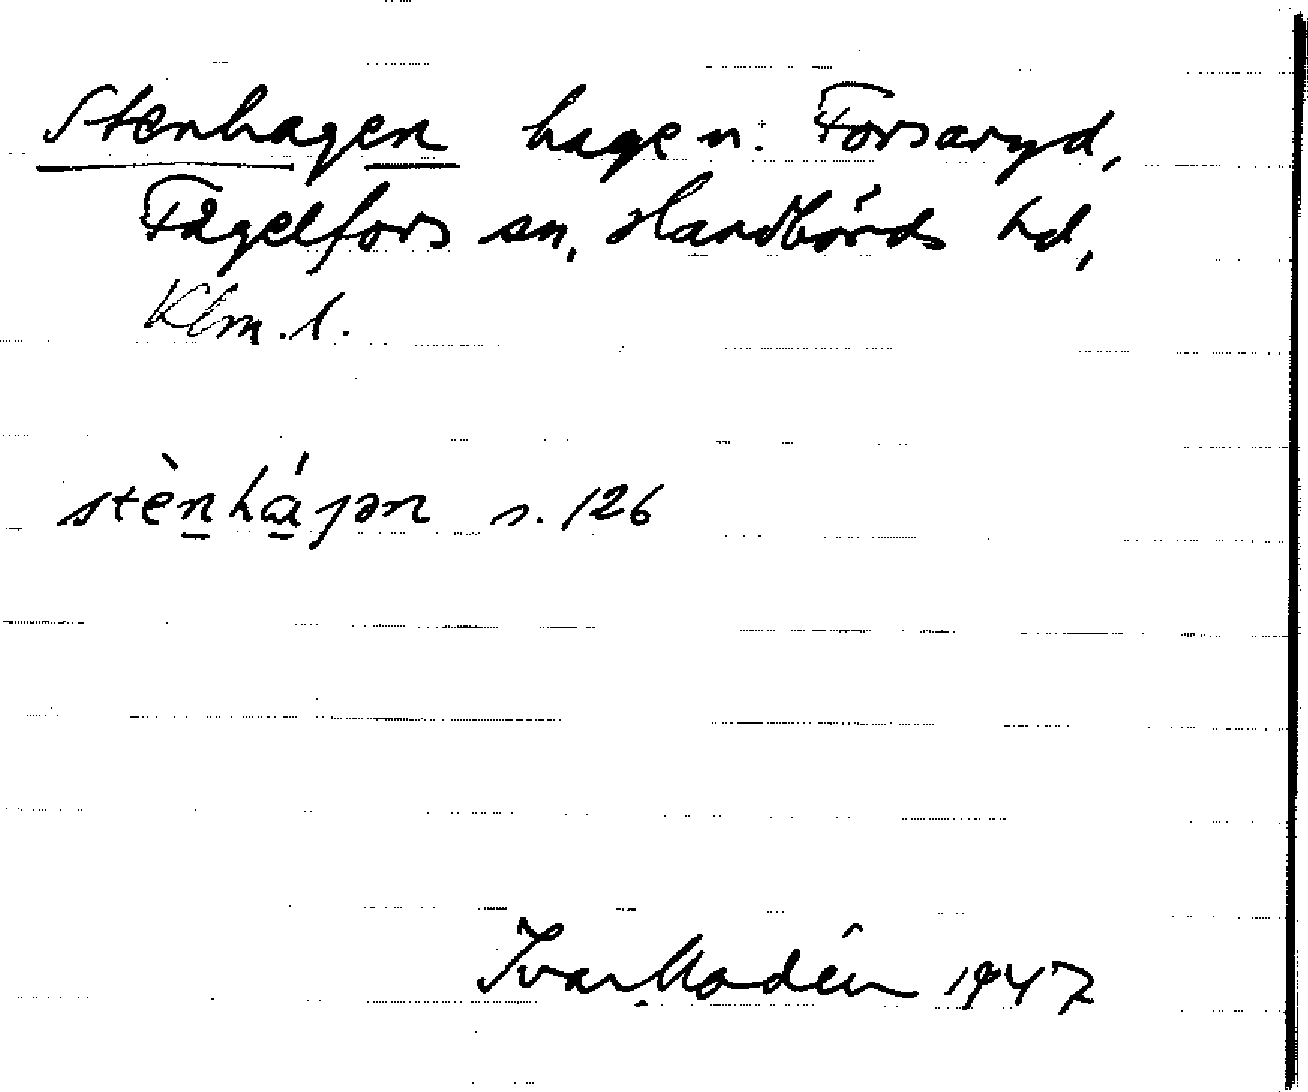 Stenhagen hage n. Forsaryd,
Fågelfors sn, Handbörds hd,
Klm. l.
stènhájən s. 126
Ivar Modéer 1947